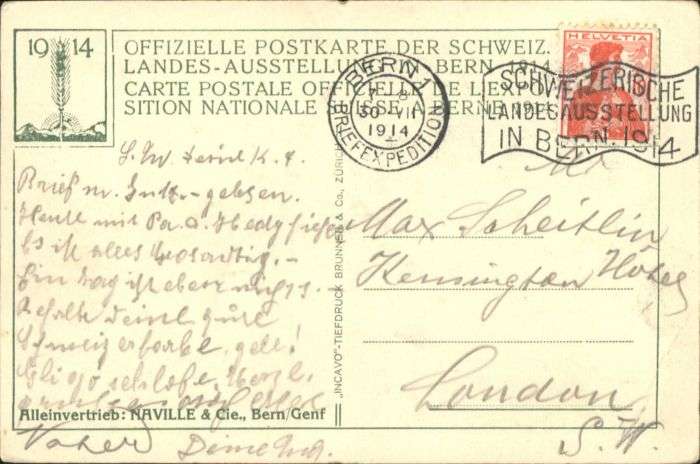 1914
OFFIZIELLE POSTKARTE DER SCHWEIZ.
LANDES-AUSSTELLUNG BERN 1914
CARTE POSTALE OFFICIELLE DE L'EXPO
SITION NATIONALE SUISSE A BERNE 1914
HELVETIA
BERN 1
30 VII
1914
BRIEFEXPEDITION
SCHWEIZERISCHE
LANDESAUSSTELLUNG
IN BERN. 1914
Brief m.
Heute mit Pa. u. Hedy hier
Es ist alles grossartig. -
Ein Tag ist eben nichts.
Behalte Deine gute
Schweizerfarbe, gell!
Mr
Max Scheitlin
Kensington Hotel
London
S. W.
„INCAVO"-TIEFDRUCK BRUNNER & Co., ZÜRICH
Alleinvertrieb: NAVILLE & Cie., Bern/Genf